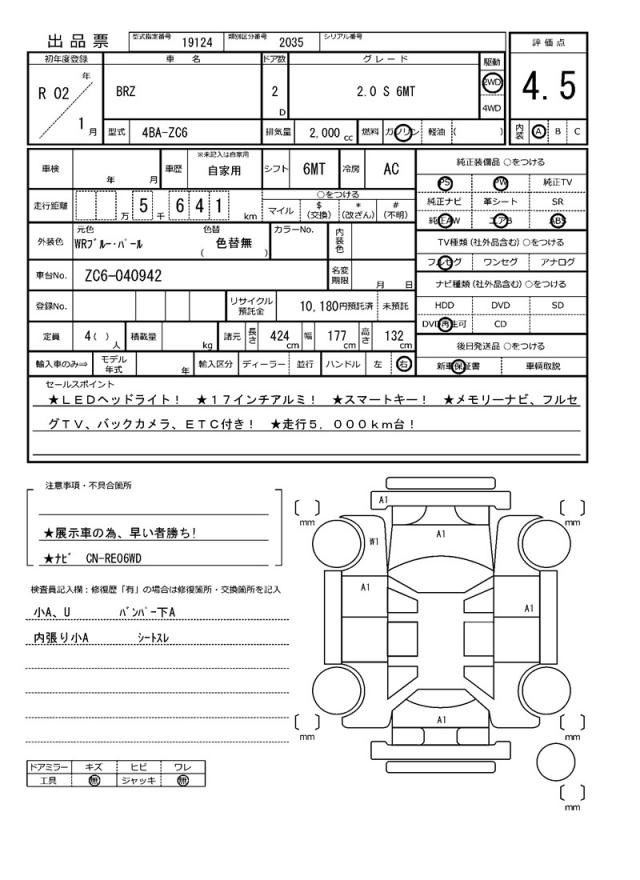 出品票 型式指定番号 19124 類別区分番号 2035 シリアル番号
初年度登録 車名 ドア数 グレード 駆動 評価点
R 02 年 1 月 BRZ 2 D 2.0 S 6MT 2WD 4WD 4.5
型式 4BA-ZC6 排気量 2,000 cc 燃料 ガソリン 軽油 ( ) 内装 A B C
車検 年 月 車歴 ※未記入は自家用 自家用 シフト 6MT 冷房 AC
走行距離 万 5 千 6 4 1 km ○をつける マイル $ (交換) * (改ざん) # (不明)
外装色 元色 WRブルー・パール 色替 色替無 ( ) カラーNo. 内装色
車台No. ZC6-040942 名変期限 月 日
登録No. リサイクル預託金 10,180円預託済 未預託
定員 4( ) 人 積載量 kg 諸元 長さ 424 cm 幅 177 cm 高さ 132 cm
輸入車のみ⇒ モデル年式 年 輸入区分 ディーラー 並行 ハンドル 左 右
純正装備品 ○をつける
PS PW 純正TV
純正ナビ 革シート SR
純正AW エアB ABS
TV種類(社外品含む)○をつける
フルセグ ワンセグ アナログ
ナビ種類(社外品含む)○をつける
HDD DVD SD
DVD再生可 CD
後日発送品 ○をつける
新車保証書 車輌取説
セールスポイント
★LEDヘッドライト! ★17インチアルミ! ★スマートキー! ★メモリーナビ、フルセ
グTV、バックカメラ、ETC付き! ★走行5,000km台!
注意事項・不具合箇所
★展示車の為、早い者勝ち!
★ナビ CN-RE06WD
検査員記入欄:修復歴「有」の場合は修復箇所・交換箇所を記入
小A、U バンパー下A
内張り小A シートスレ
ドアミラー キズ ヒビ ワレ
工具 無 ジャッキ 無
A1
mm mm
W1 A1
A1 A1
A1
mm mm
mm